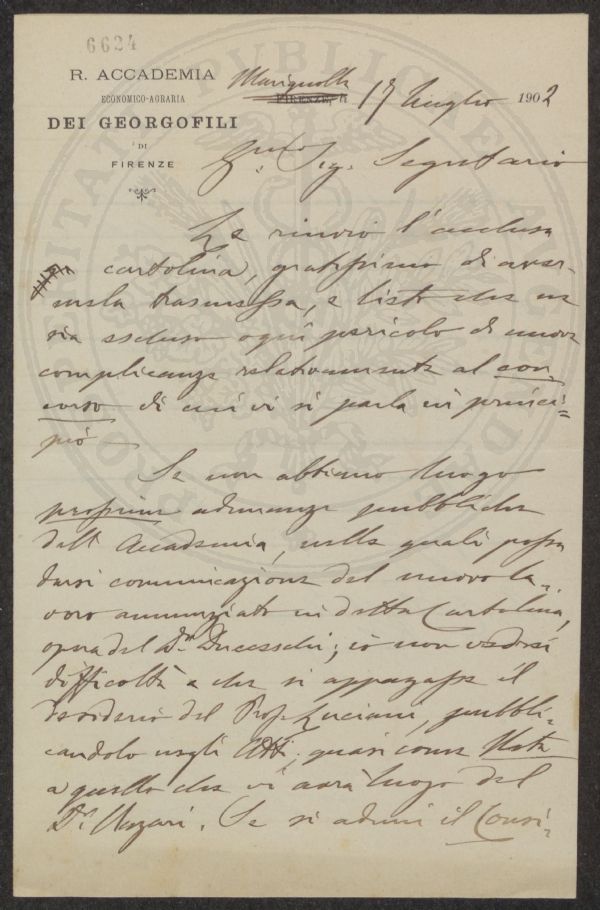 6624
R. ACCADEMIA
ECONOMICO-AGRARIA
DEI GEORGOFILI
DI
FIRENZE
Marignolle
FIRENZE, li
17 Luglio 1902
Sig. Segretario
Le rinvio l'acclusa
cartolina, gratissimo di aver-
mela trasmessa, e lieto che ne
sia escluso ogni pericolo di nuove
complicanze relativamente al con
corso di cui vi si parla in princi=
pio
Se non abbiano luogo
prossime adunanze pubbliche
dell' Accademia, nelle quali possa
darsi comunicazione del nuovo la-
voro annunziato in detta Cartolina,
opera del Dr. Ducceschi; io non vedrei
difficoltà a che si appagasse il
desiderio del Prof. Luciani, pubbli-
candolo negli Atti, quasi come Nota
a quello che vi avrà luogo del
Dr. Nazari. Se si aduni il Consi=
PUBLICAE
PRO